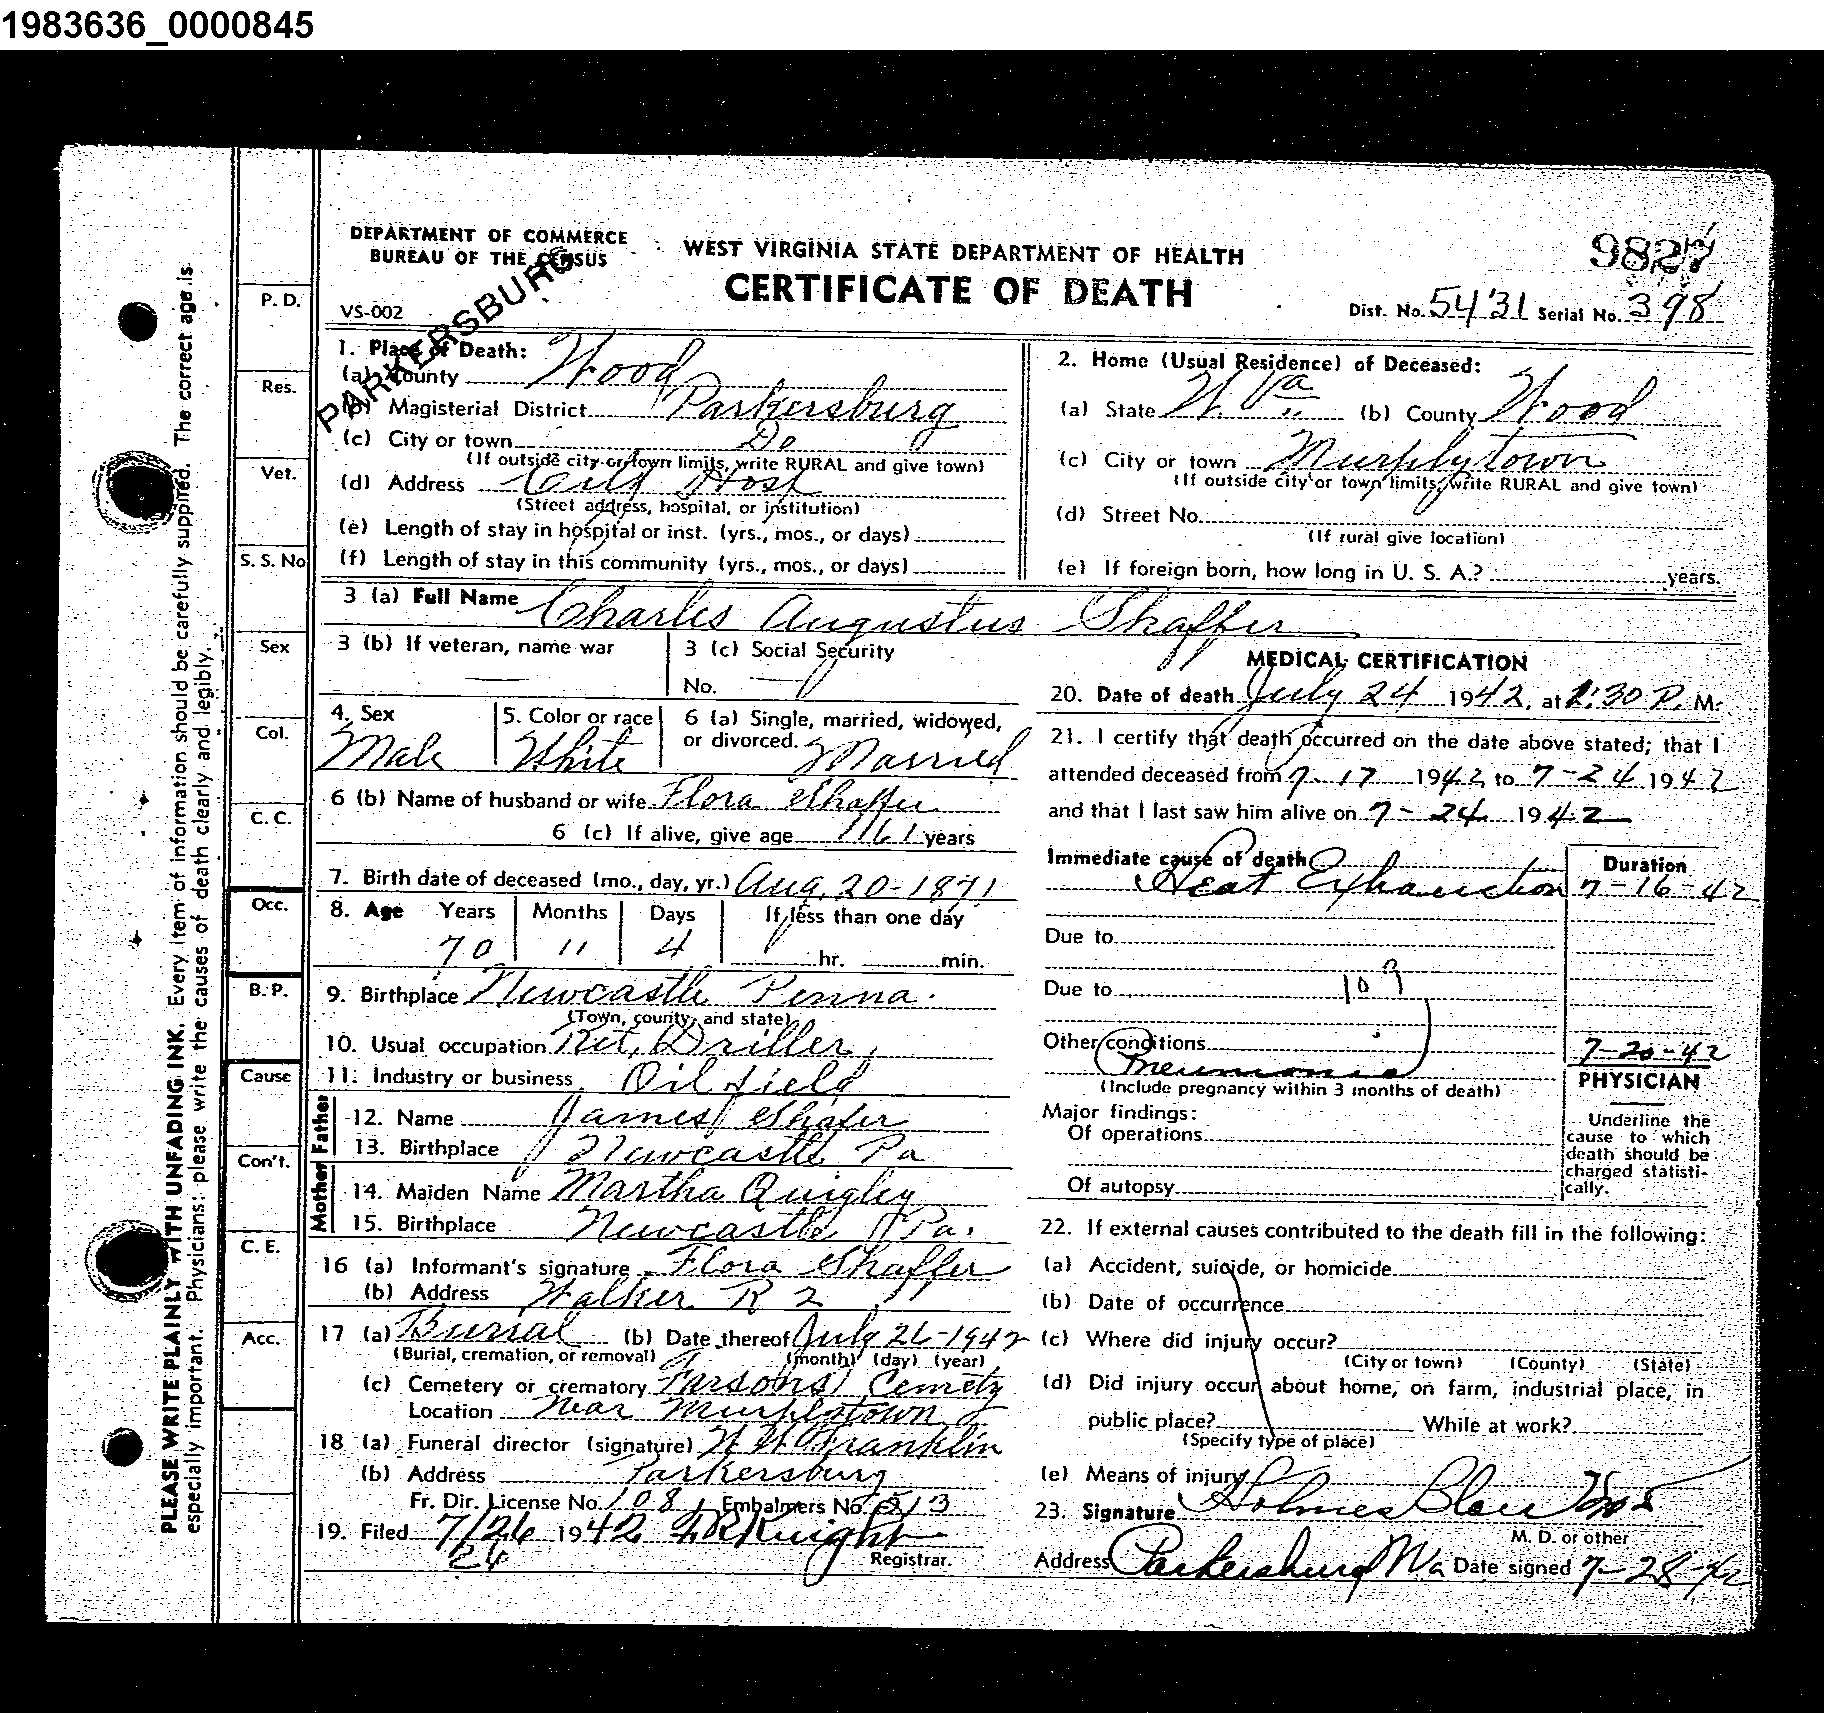 1983636_0000845
DEPARTMENT OF COMMERCE
BUREAU OF THE CENSUS
WEST VIRGINIA STATE DEPARTMENT OF HEALTH
CERTIFICATE OF DEATH
9827
VS-002
PARKERSBURG
Dist. No. 5431 Serial No. 398
1. Place of Death:
(a) County Wood
(b) Magisterial District Parkersburg
(c) City or town Do
(If outside city or town limits, write RURAL and give town)
(d) Address City Hosp
(Street address, hospital, or institution)
(e) Length of stay in hospital or inst. (yrs., mos., or days)
(f) Length of stay in this community (yrs., mos., or days)
2. Home (Usual Residence) of Deceased:
(a) State W. Va (b) County Wood
(c) City or town Murphytown
(If outside city or town limits, write RURAL and give town)
(d) Street No.
(If rural give location)
(e) If foreign born, how long in U. S. A.? years.
3 (a) Full Name Charles Augustus Shaffer
3 (b) If veteran, name war
3 (c) Social Security
No.
4. Sex Male
5. Color or race White
6 (a) Single, married, widowed,
or divorced. Married
6 (b) Name of husband or wife Flora Shaffer
6 (c) If alive, give age 61 years
7. Birth date of deceased (mo., day, yr.) Aug. 20-1871
8. Age Years Months Days If less than one day
70 11 4 hr. min.
9. Birthplace Newcastle Penna.
(Town, county, and state)
10. Usual occupation Ret. Driller
11. Industry or business Oil field
Father
12. Name James Shafer
13. Birthplace Newcastle Pa
Mother
14. Maiden Name Martha Quigley
15. Birthplace Newcastle Pa.
16 (a) Informant's signature Flora Shaffer
(b) Address Walker R 2
17 (a) Burial (b) Date thereof July 26-1942
(Burial, cremation, or removal) (month) (day) (year)
(c) Cemetery or crematory Parsons Cemety
Location Near Murphytown
18 (a) Funeral director (signature) Franklin
(b) Address Parkersburg
Fr. Dir. License No. 108 Embalmers No. 513
19. Filed 7/26 1942 Knight
24 Registrar.
MEDICAL CERTIFICATION
20. Date of death July 24 1942, at :30 P. M.
21. I certify that death occurred on the date above stated; that I
attended deceased from 7-17 1942 to 7-24 1942
and that I last saw him alive on 7-24 1942
Immediate cause of death Duration
Heat Exhaustion 7-16-42
Due to
Due to 109
Other conditions
Pneumonia 7-20-42
(Include pregnancy within 3 months of death)
PHYSICIAN
Underline the
cause to which
death should be
charged statisti-
cally.
Major findings:
Of operations
Of autopsy
22. If external causes contributed to the death fill in the following:
(a) Accident, suicide, or homicide
(b) Date of occurrence
(c) Where did injury occur?
(City or town) (County) (State)
(d) Did injury occur about home, on farm, industrial place, in
public place? While at work?
(Specify type of place)
(e) Means of injury
23. Signature Holmes Blair
M. D. or other
Address Parkersburg W Va Date signed 7-28-42
P. D.
Res.
Vet.
S. S. No
Sex
Col.
C. C.
Occ.
B. P.
Cause
Con't.
C. E.
Acc.
PLEASE WRITE PLAINLY WITH UNFADING INK. Every item of information should be carefully supplied. The correct age is
especially important. Physicians: please write the causes of death clearly and legibly.